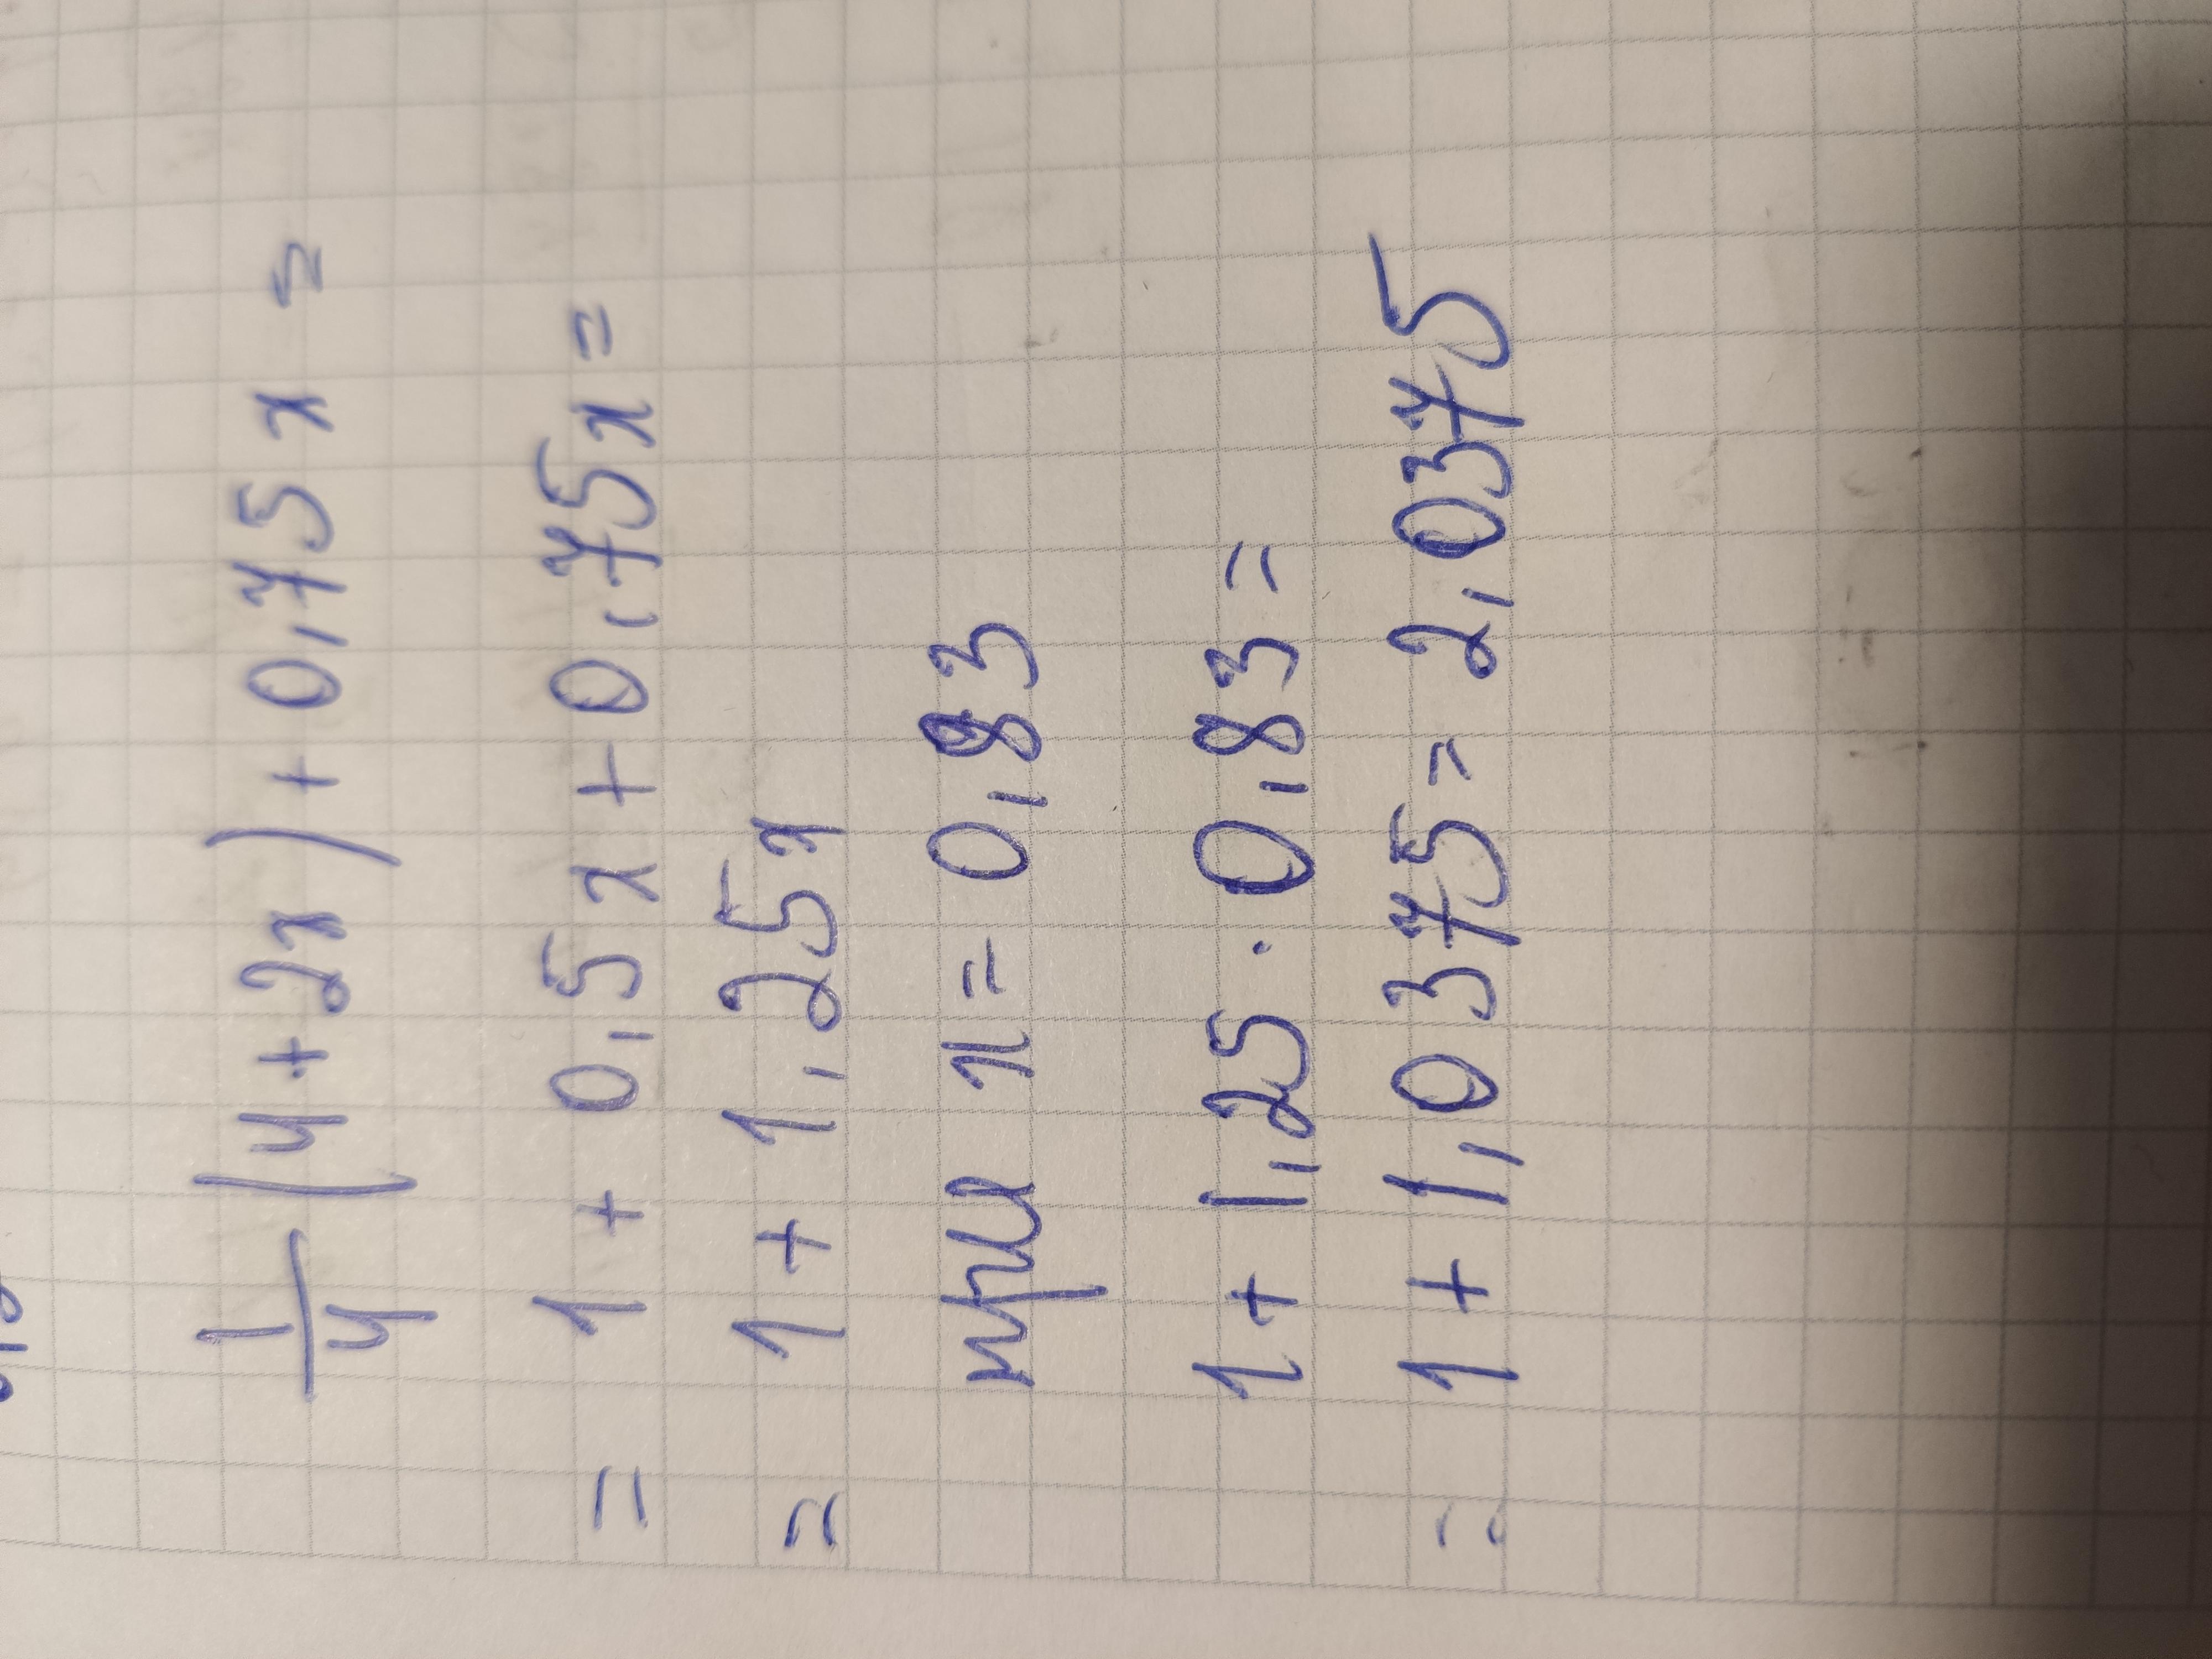 1/4 (4 + 2x) + 0,75x =
= 1 + 0,5x + 0,75x =
= 1 + 1,25x
при x = 0,83
1 + 1,25 · 0,83 =
= 1 + 1,0375 = 2,0375